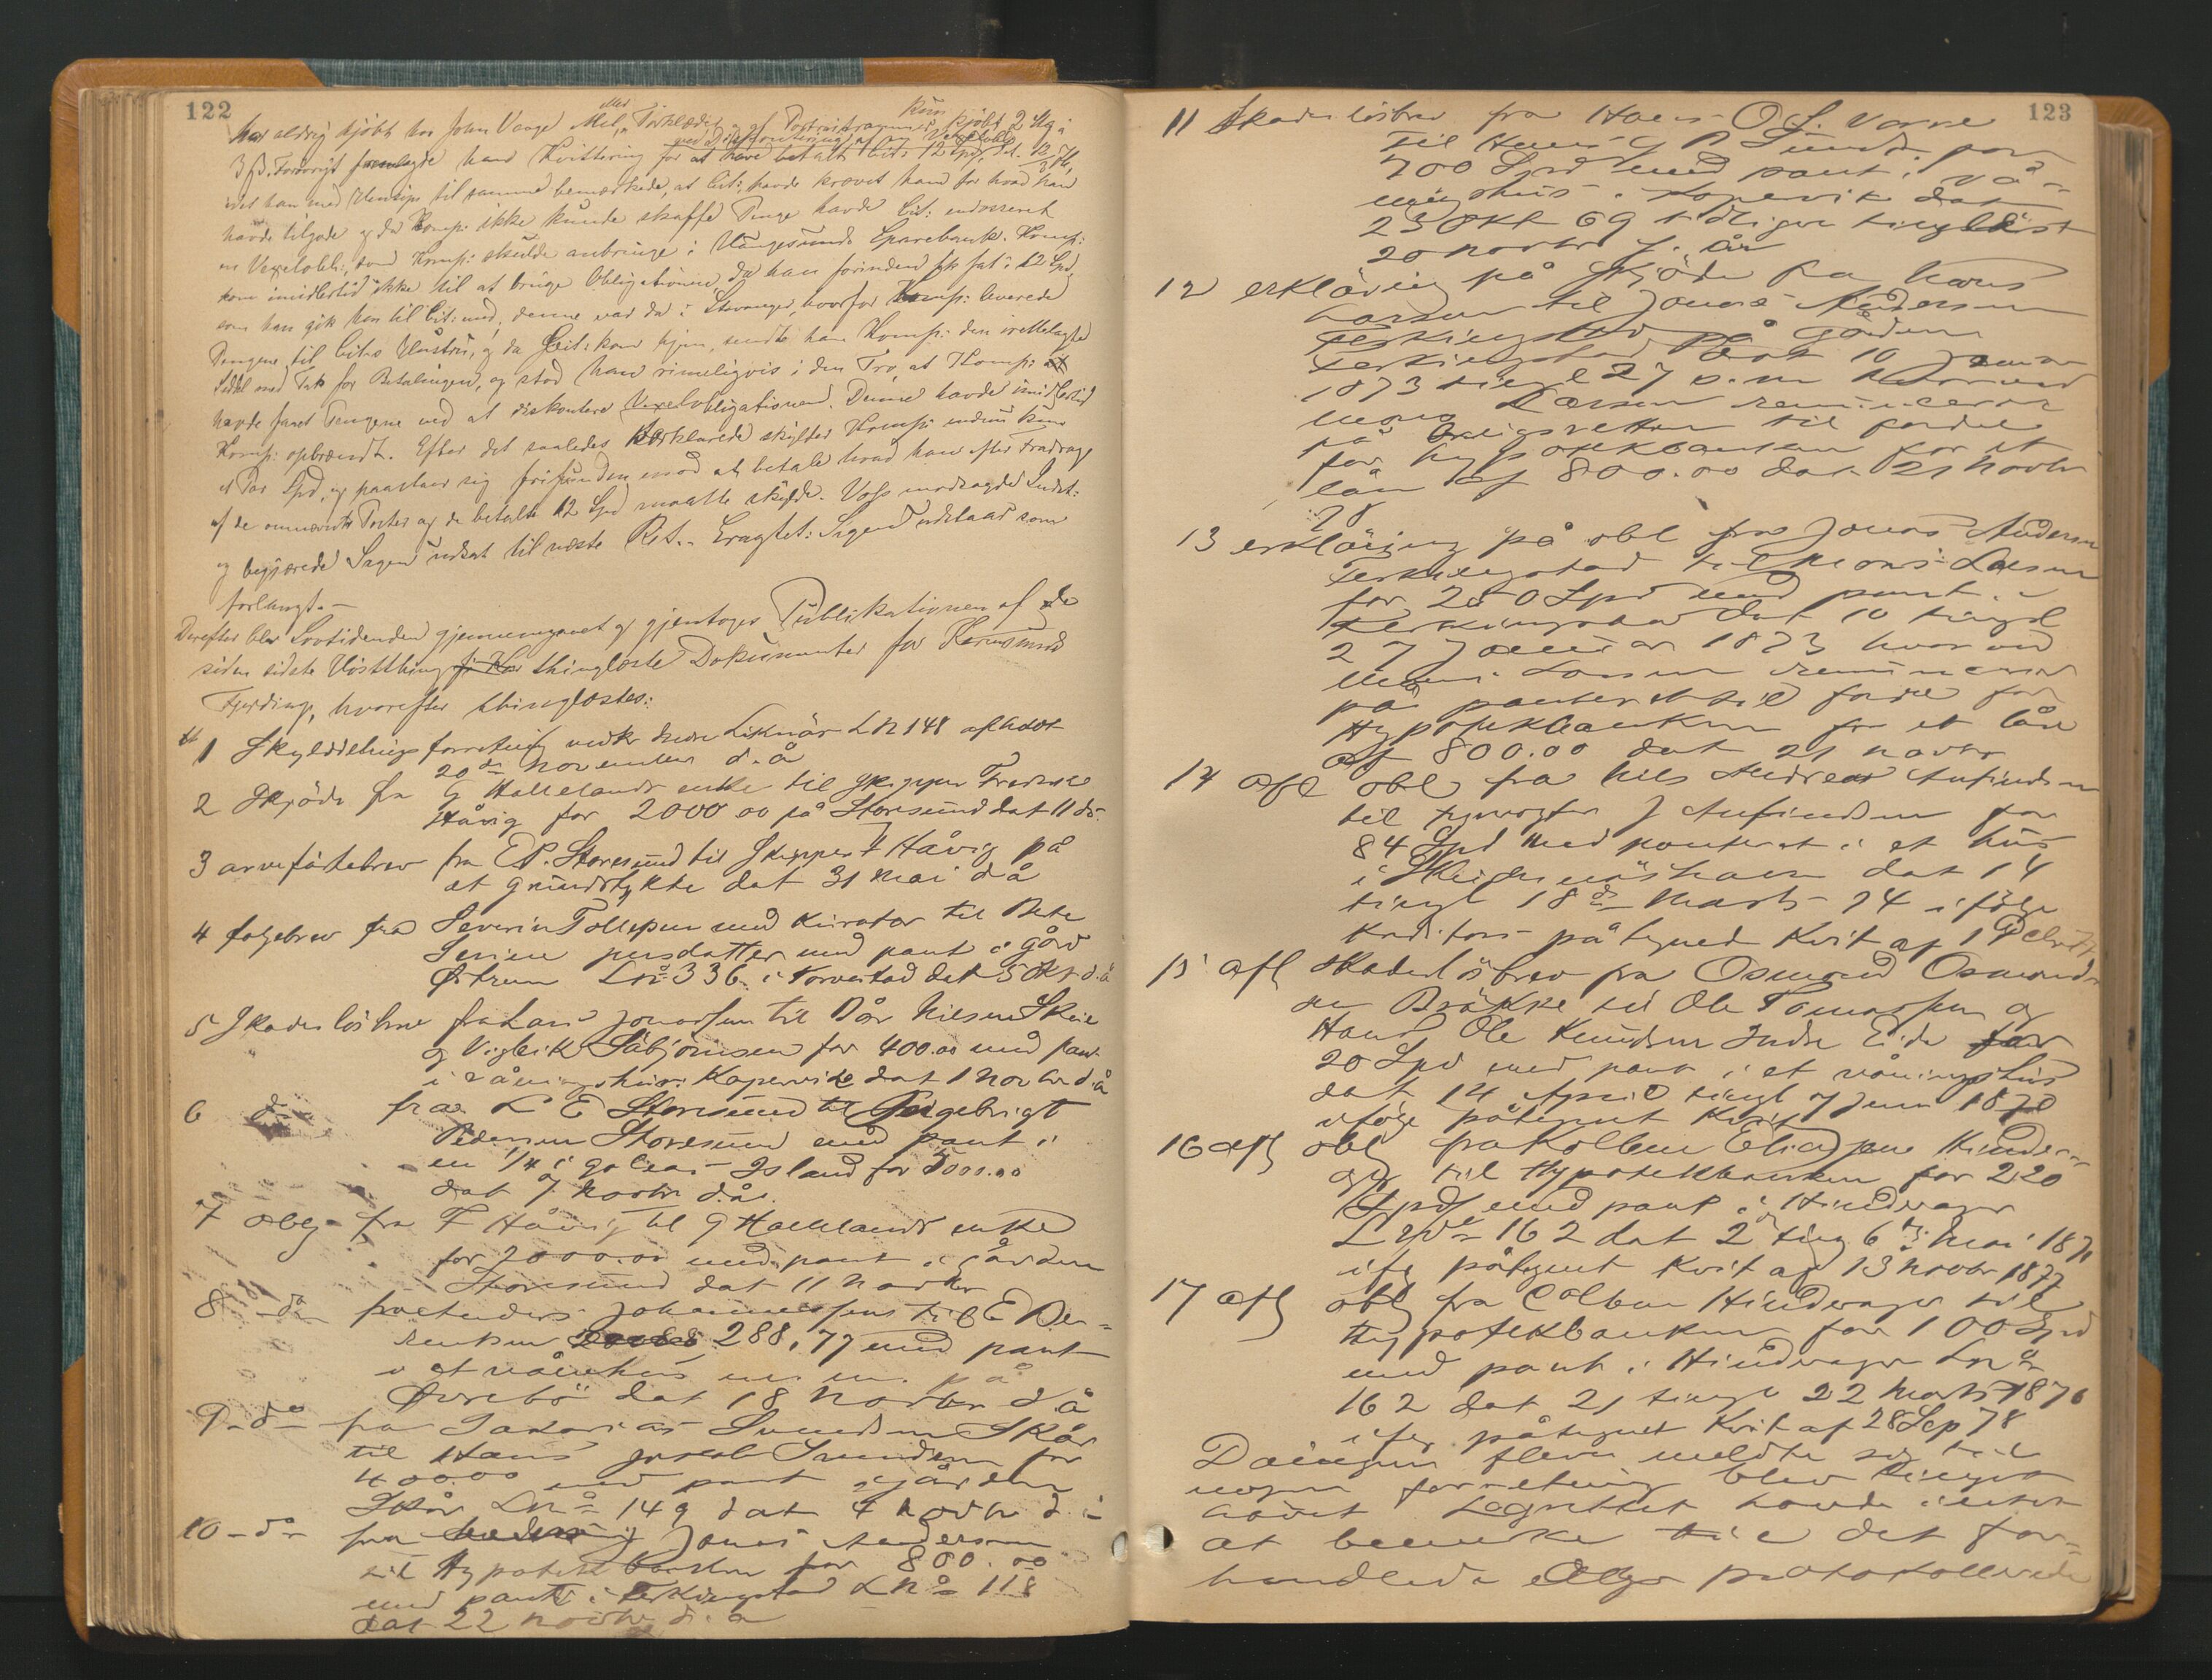 122
har aldrig kjøbt hos John Vaage Mel, Tørklæder og af kun kjøbt 2 Kg i
3 ß. Forøvrigt fremlagde han Kvittering for at have betalt Cit: 12 Spd,
idet han med Hensyn til samme bemærkede, at Cit: havde krævet ham for hvad han
havde tilgode og da Komp: ikke kunde skaffe Penge havde Cit: endosseret
en Vexelobl:, som Komp: skulde anbringe i Haugesunds Sparebank. Komp:
kom imidlertid ikke til at bruge Obligationen, da han forinden fik fat i 12 Spd,
som han gik hen til Cit: med; denne var da i Stavanger, hvorfor Komp: leverede
Pengene til Cit:s Hustru, og da Cit: kom hjem, sendte han Komp: den irettelagte
Seddel med Tak for Betalingen, og stod han rimeligvis i den Tro, at Komp:
havde faaet Pengene ved at diskontere Vexelobligationen. Denne havde imidlertid
Komp: opbrændt. Efter det saaledes forklarede skylder Komp: endnu kun
et Par Spd, og paastaar sig frifunden mod at betale hvad han efter Fradrag
af de omnævnte Poster og de betalte 12 Spd maatte skylde. Voss modsagde Indst:
og begjærede Sagen udsat til næste Ret. - Eragtet: Sagen udstaar som
forlangt. -
Derefter blev Lovtidenden gjennemgaaet og gjentoges Publikationen af de
siden sidste Høstthing thinglæste Dokumenter for Karmsund
Fjerding, hvorefter thinglæstes:
1 Skylddelingsforretning vedk nedre Liknæs LN 148 afholdt
20de November d. å
2 Skjøde fra G Hallelands enke til Skipper Fredrik
Håvig for 2000 00 på Storesund dat 11 ds.
3 arvefæstebrev fra E P. Storesund til Skipper F Håvig på
et grundstykke dat 31 Mai d å
4 følgebrev fra Severin Tollefsen med Kurator til Berte
Serine persdatter med pant i gård
Østrem LNo 336 i Torvestad dat 5 Okt d. å
5 Skadesløsbrev fra Lars Jonassen til Nielsen
og Vigleik Sæbjørnsen for 400.00 med pant
i våningshus i Kopervik dat 1 Novbr d. å
6 do fra L E Storesund til Ingebrigt
Pedersen Storesund med pant i
en 1/4 i galeas Island for 5000.00
dat 7 Novbr d. å.
7 obl. fra F Håvig til G Hallelands enke
for 2000.00 med pant i gården
Storesund dat 11 Novbr
8 do fra Johannessen til E Be-
rentsen 288,77 med pant
i et våvehus m. m. på
Øvrebö dat 18 Novbr d å
9 do fra Sakarias Svendsen Skår
til Hans Jakob Svendsen for
400.00 med pant i gården
Skår LNo 149 dat 4 Novbr d. å
10 do fra Jonas Andersen
til Hypotekbanken for 800.00
med pant i Ferkingstad LNo 118
dat 22 Novbr d. å
123
11 Skadesløsbrev fra Hans O S. Vorre
til Hans G P Sund for
700 Spd med pant i vå-
ningshus i Kopervik dat
23 Okt 69 tidligere tinglæst
20 Novbr f. år
12 erklæring på Skjøde fra Mons
Larsen til Jonas Andersen
Ferkingstad på gården
Ferkingstad dat 10 Januar
1873 tingl 27 s. m hvorved
Mons Larsen renuncerer
på boligsretten til fordel
for hypotekbanken for et
lån af 800.00 dat 21 Novbr
78
13 erklæring på obl fra Jonas Andersen
Ferkingstad til Mons Larsen
for 250 Spd med pant i
Ferkingstad dat 10 tingl
27 Januar 1873 hvorved
Mons Larsen renuncerer
på panteret til fordel for
Hypotekbanken for et lån
af 800.00 dat 21 Novbr
14 afl obl fra Nils Andreas Anfindsen
til J Anfindsen for
84 Spd med panteret i et hus
i Skudesneshavn dat 14
tingl 18de Marts 74 ifølge
Kreditors påtegnet Kvit af 1
15 afl Skadesløsbrev fra Osmund Osmund-
sen Brække til Ole Tomassen og
Hans Ole Knudsen Indre Eide for
20 Spd med pant i et våningshus
dat 14 April tingl 7 Juni 1870
ifølge påtegnet Kvit
16 afl obl fra Kolben Eliassen Hinder-
ager til Hypotekbanken for 220
Spd med pant i Hinderager
LNo 162 dat 2 ting 6 Mai 1871
iflg påtegnet Kvit af 13 Novbr 1877
17 afl obl fra Colben Hinderager til
Hypotekbanken for 100 Spd
med pant i Hinderager LNo
162 dat 21 tingl 22 Marts 1876
iflg påtegnet Kvit af 28 Sep 78
Da ingen flere meldte sig til
nogen forretning blev tinget
hævet Lagrettet havde intet
at bemerke til det for-
handlede eller protokollerede